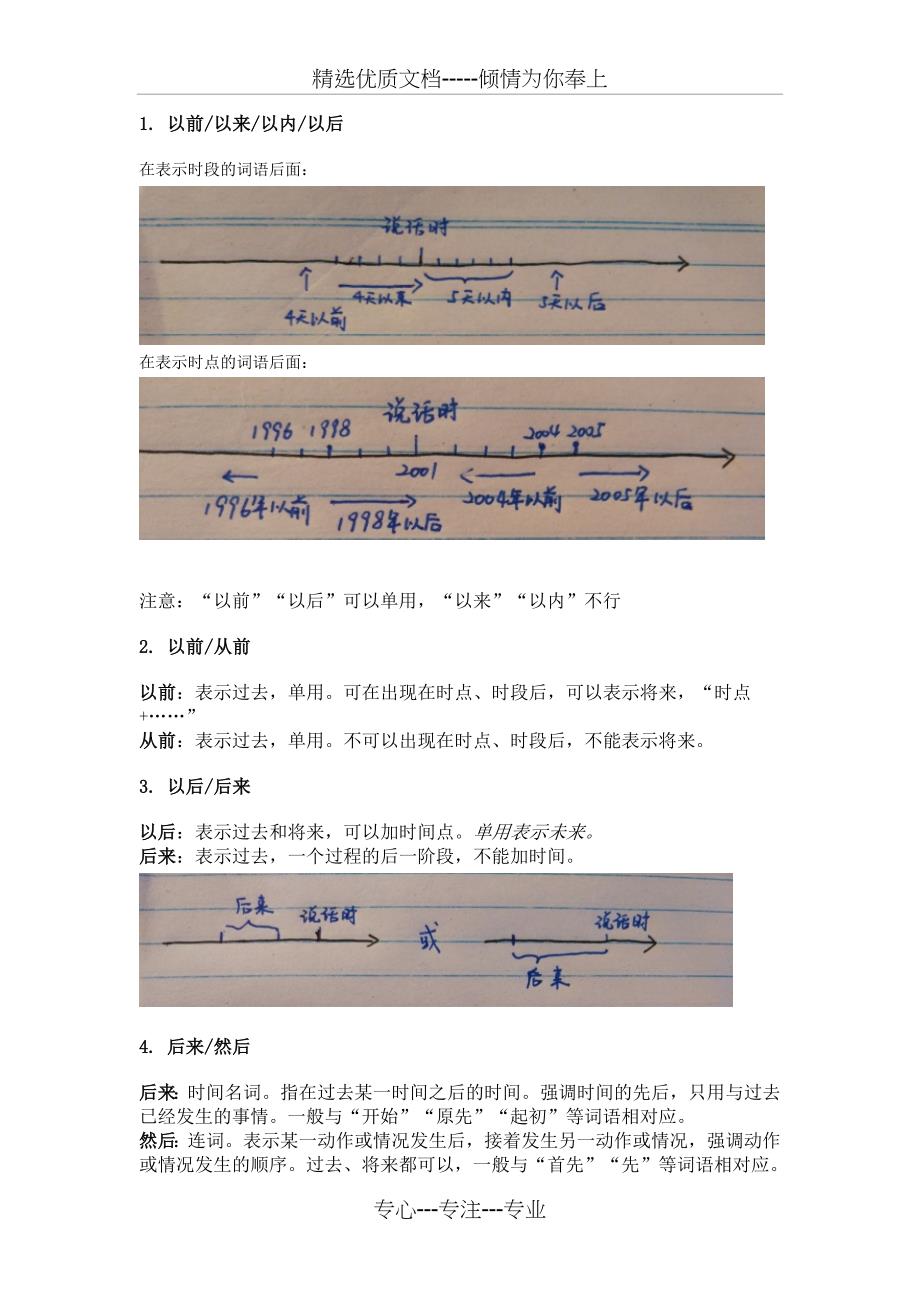 精选优质文档-----倾情为你奉上
1. 以前/以来/以内/以后
在表示时段的词语后面：
说话时
4天以来 5天以内 5天以后
4天以前
在表示时点的词语后面：
说话时
1996 1998 2004 2005
2001
1996年以前 1998年以后 2004年以前 2005年以后
注意：“以前”“以后”可以单用，“以来”“以内”不行
2. 以前/从前
以前：表示过去，单用。可在出现在时点、时段后，可以表示将来，“时点
+……”
从前：表示过去，单用。不可以出现在时点、时段后，不能表示将来。
3. 以后/后来
以后：表示过去和将来，可以加时间点。单用表示未来。
后来：表示过去，一个过程的后一阶段，不能加时间。
后来 说话时 或 说话时
后来
4. 后来/然后
后来：时间名词。指在过去某一时间之后的时间。强调时间的先后，只用与过去
已经发生的事情。一般与“开始”“原先”“起初”等词语相对应。
然后：连词。表示某一动作或情况发生后，接着发生另一动作或情况，强调动作
或情况发生的顺序。过去、将来都可以，一般与“首先”“先”等词语相对应。
专心---专注---专业